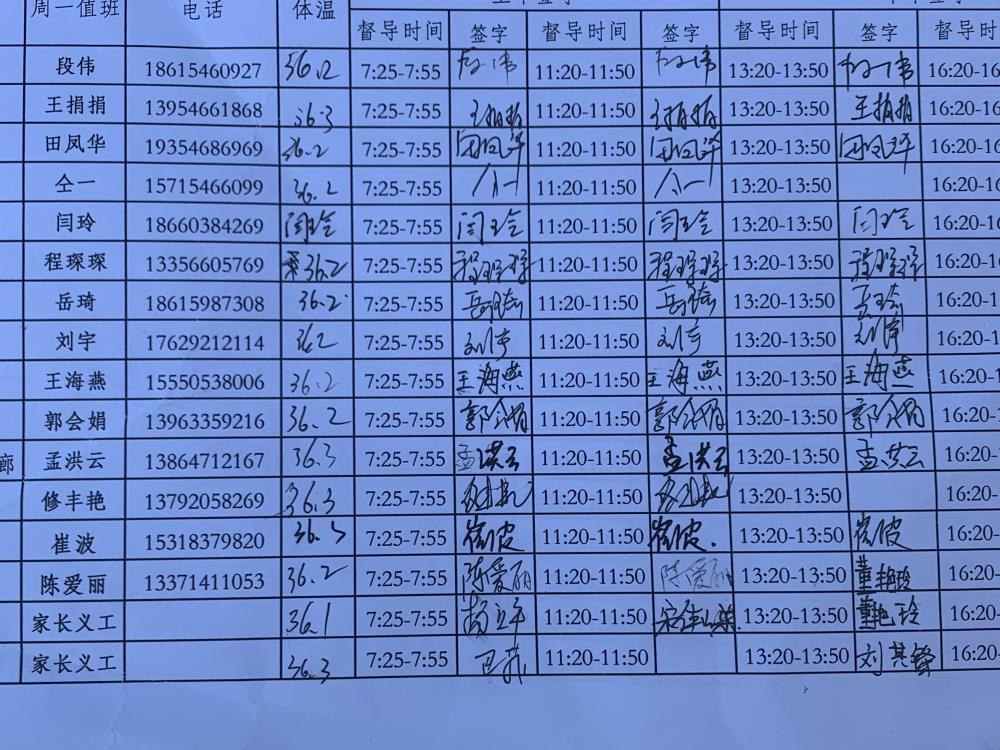 周一值班 电话 体温
督导时间 签字 督导时间 签字 督导时间 签字 督导时
段伟 18615460927 36.2 7:25-7:55 段伟 11:20-11:50 段伟 13:20-13:50 段伟 16:20-16
王捐捐 13954661868 36.3 7:25-7:55 王捐捐 11:20-11:50 王捐捐 13:20-13:50 王捐捐 16:20-16
田凤华 19354686969 36.2 7:25-7:55 田凤华 11:20-11:50 田凤华 13:20-13:50 田凤华 16:20-16
仝一 15715466099 36.2 7:25-7:55 仝一 11:20-11:50 仝一 13:20-13:50 16:20-16
闫玲 18660384269 闫玲 7:25-7:55 闫玲 11:20-11:50 闫玲 13:20-13:50 闫玲 16:20-16
程琛琛 13356605769 36.2 7:25-7:55 程琛琛 11:20-11:50 程琛琛 13:20-13:50 程琛琛 16:20-16
岳琦 18615987308 36.2 7:25-7:55 岳琦 11:20-11:50 岳琦 13:20-13:50 岳琦 16:20-1
刘宇 17629212114 36.2 7:25-7:55 刘宇 11:20-11:50 刘宇 13:20-13:50 刘宇 16:20-1
王海燕 15550538006 36.2 7:25-7:55 王海燕 11:20-11:50 王海燕 13:20-13:50 王海燕 16:20-1
郭会娟 13963359216 36.2 7:25-7:55 郭会娟 11:20-11:50 郭会娟 13:20-13:50 郭会娟 16:20-
廊 孟洪云 13864712167 36.3 7:25-7:55 孟洪云 11:20-11:50 孟洪云 13:20-13:50 孟洪云 16:20-
修丰艳 13792058269 36.3 7:25-7:55 修丰艳 11:20-11:50 修丰艳 13:20-13:50 16:20-
崔波 15318379820 36.3 7:25-7:55 崔波 11:20-11:50 崔波. 13:20-13:50 崔波 16:20-
陈爱丽 13371411053 36.2 7:25-7:55 陈爱丽 11:20-11:50 陈爱丽 13:20-13:50 董艳玲 16:20-
家长义工 36.1 7:25-7:55 11:20-11:50 13:20-13:50 董艳玲 16:20-
家长义工 36.3 7:25-7:55 11:20-11:50 13:20-13:50 16:20-